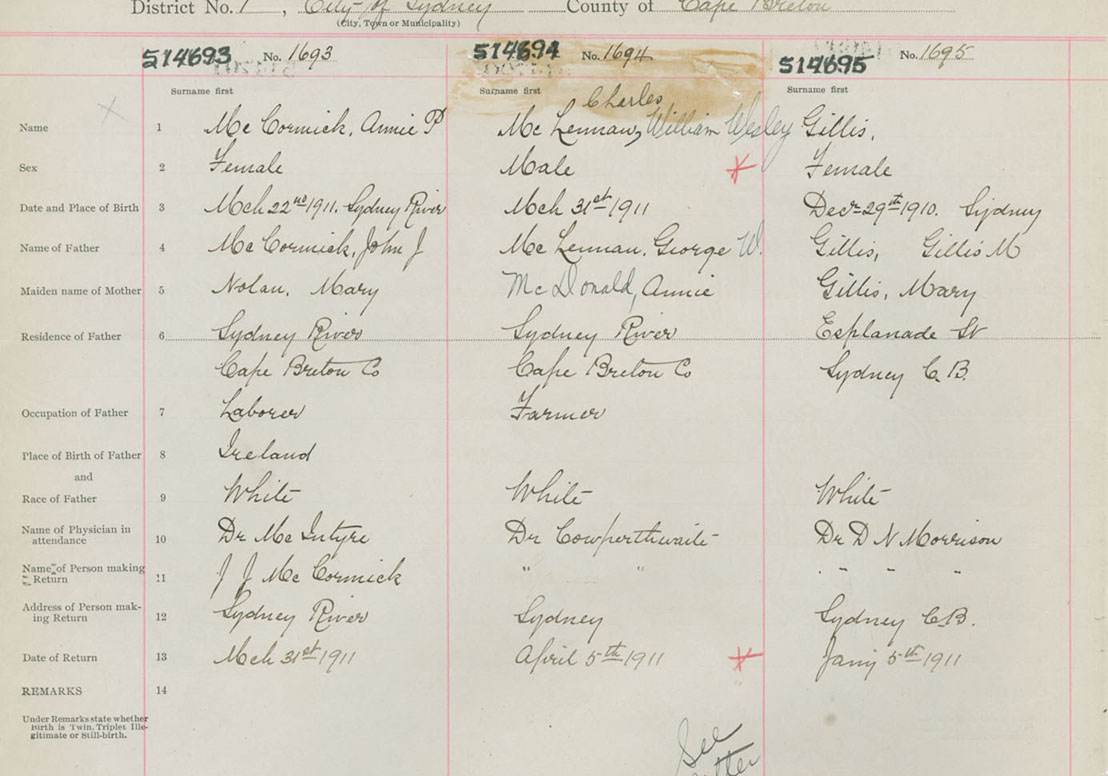 District No. 1, City of Sydney County of Cape Breton
(City, Town or Municipality)
514693 No. 1693 514694 No. 1694 514695 No. 1695
Surname first Surname first Surname first
Charles
Name 1 Mc Cormick, Annie P Mc Lennan, William Wesley Gillis,
Sex 2 Female Male Female
Date and Place of Birth 3 Mch 22nd 1911. Sydney River Mch 31st 1911 Decr 29th 1910. Sydney
Name of Father 4 Mc Cormick, John J Mc Lennan, George W. Gillis, Gillis M
Maiden name of Mother 5 Nolan, Mary McDonald, Annie Gillis, Mary
Residence of Father 6 Sydney River Sydney River Esplanade St
Cape Breton Co Cape Breton Co Sydney C.B.
Occupation of Father 7 Laborer Farmer
Place of Birth of Father 8 Ireland
and
Race of Father 9 White White White
Name of Physician in
attendance 10 Dr Mc Intyre Dr Cowperthwaite Dr D N Morrison
Name of Person making
Return 11 J J Mc Cormick " " " " " "
Address of Person mak-
ing Return 12 Sydney River Sydney Sydney C.B.
Date of Return 13 Mch 31st 1911 April 5th 1911 Jany 5th 1911
REMARKS 14
Under Remarks state whether
Birth is Twin, Triplet Ille-
gitimate or Still-birth.
See